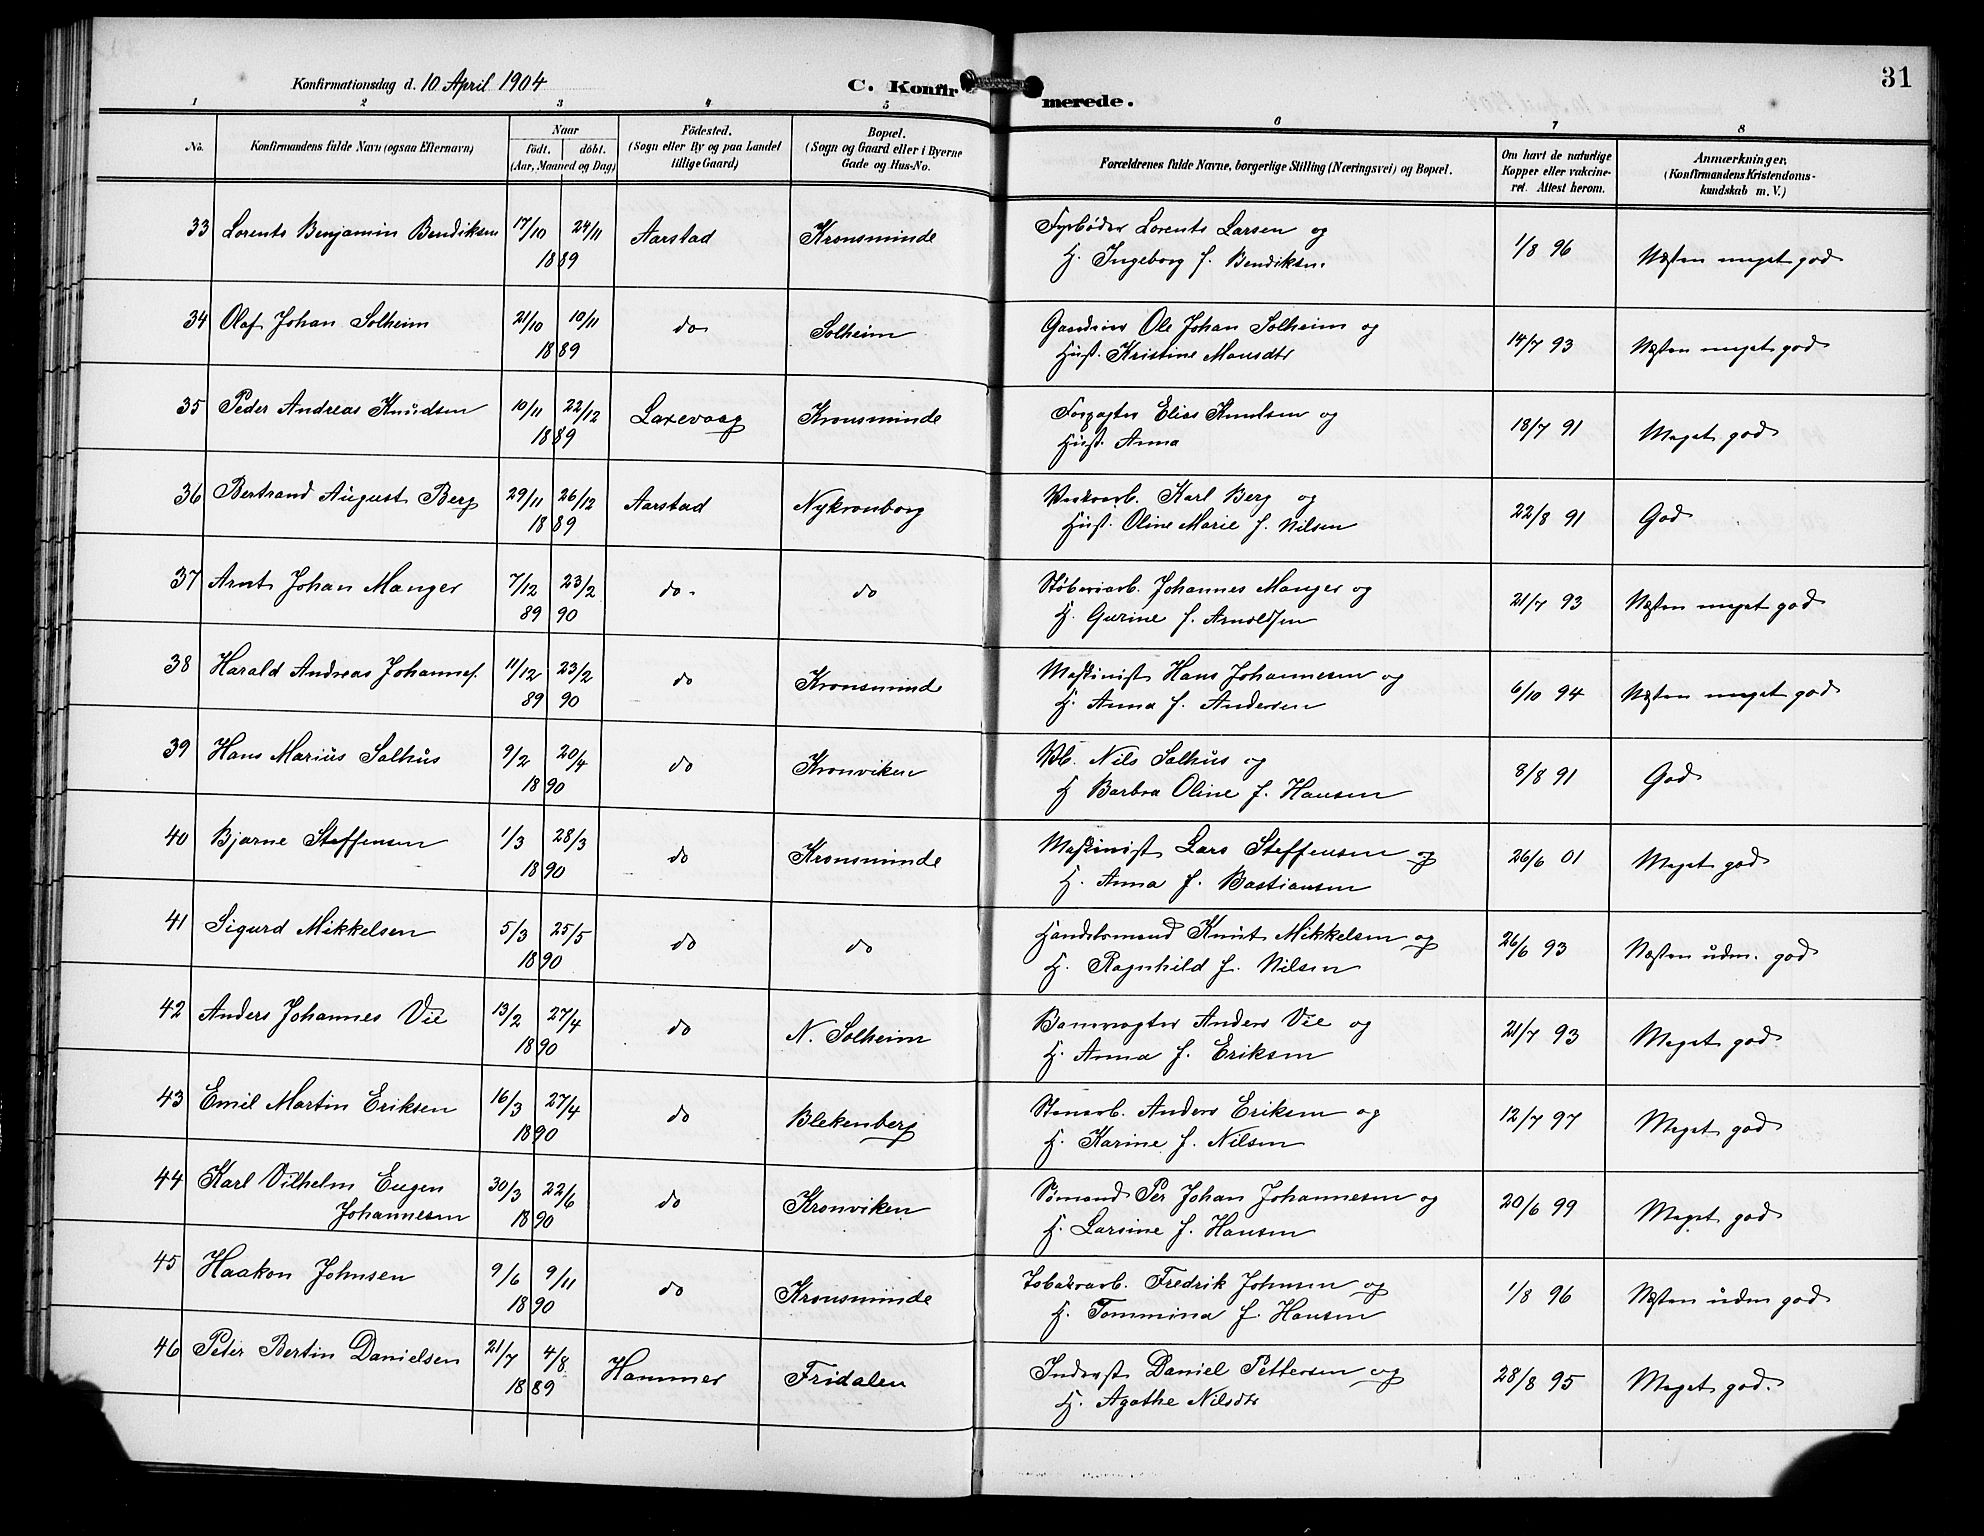 31
Konfirmationsdag d. 10 April 1904
C. Konfirmerede.
1 2 3 4 5 6 7 8
No. | Konfirmandens fulde Navn (ogsaa Efternavn) | Naar født. døbt. (Aar, Maaned og Dag) | Fødested. (Sogn eller By og paa Landet tillige Gaard) | Bopæl. (Sogn og Gaard eller i Byerne Gade og Hus-No. | Forældrenes fulde Navne, borgerlige Stilling (Næringsvei) og Bopæl. | Om havt de naturlige Kopper eller vakcineret. Attest herom. | Anmærkninger. (Konfirmandens Kristendomskundskab m. V.)
33 Lorents Benjamin Bendiksen 17/10 24/11 Aarstad Kronsminde Fyrbøder Lorents Larsen og 1/8 96 Næsten meget god
1889 H. Ingeborg f. Bendiksen
34 Olaf Johan Solheim 21/10 10/11 do Solheim Ole Johan Solheim og 14/7 93 Næsten meget god
1889 Hust. Kristine Monsdtr
35 Peder Andreas Knudsen 10/11 22/12 Laxevaag Kronsminde Forpagter Elias Knudsen og 18/7 91 Meget god
1889 Hust. Anna
36 Bertrand August Berg 29/11 26/12 Aarstad Nykronborg Karl Berg og 22/8 91 God
1889 Hust. Oline Marie f. Nilsen
37 Arnt Johan Manger 7/12 23/2 do. do Støberiarb. Johannes Manger og 21/7 93 Næsten meget god
89 90 H. Gurine f. Arnoldsen
38 Harald Andreas Johannes. 11/12 23/2 do Kronsminde Maskinist Hans Johannesen og 6/10 94 Næsten meget god
89 90 H. Anna f. Andersen
39 Hans Marius Salhus 9/2 20/4 do Kronviken Nils Salhus og 8/8 91 God
1890 H Barbra Oline f. Hansen
40 Bjarne Steffensen 1/3 28/3 do Kronsminde Maskinist Lars Steffensen og 26/6 01 Meget god
1890 H. Anna f. Bastiansen
41 Sigurd Mikkelsen 5/3 25/5 do do Handelsmand Knut Mikkelsen og 26/6 93 Næsten udm. god
1890 H. Ragnhild f. Nilsen
42 Anders Johannes Vie 13/2 27/4 do N. Solheim Banevogter Anders Vie og 21/7 93 Meget god
1890 H. Anna f. Eriksen
43 Emil Martin Eriksen 16/3 27/4 do Blekenberg Stenarb. Anders Eriksen og 12/7 97 Meget god
1890 H. Karine f. Nilsen
44 Karl Vilhelm Eugen 30/3 22/6 do Kronviken Sømand Per Johan Johannesen og 20/6 99 Meget god
Johannesen 1890 H. Larsine f. Hansen
45 Haakon Johnsen 9/6 9/11 do Kronsminde Tobaksarb. Fredrik Johnsen og 1/8 96 Næsten udm god
1890 H. Tommina f. Hansen
46 Peter Bertin Danielsen 21/7 4/8 Hammer Fridalen Inderst Daniel Pettersen og 28/8 95 Meget god.
1889 H. Agathe Nilsdtr